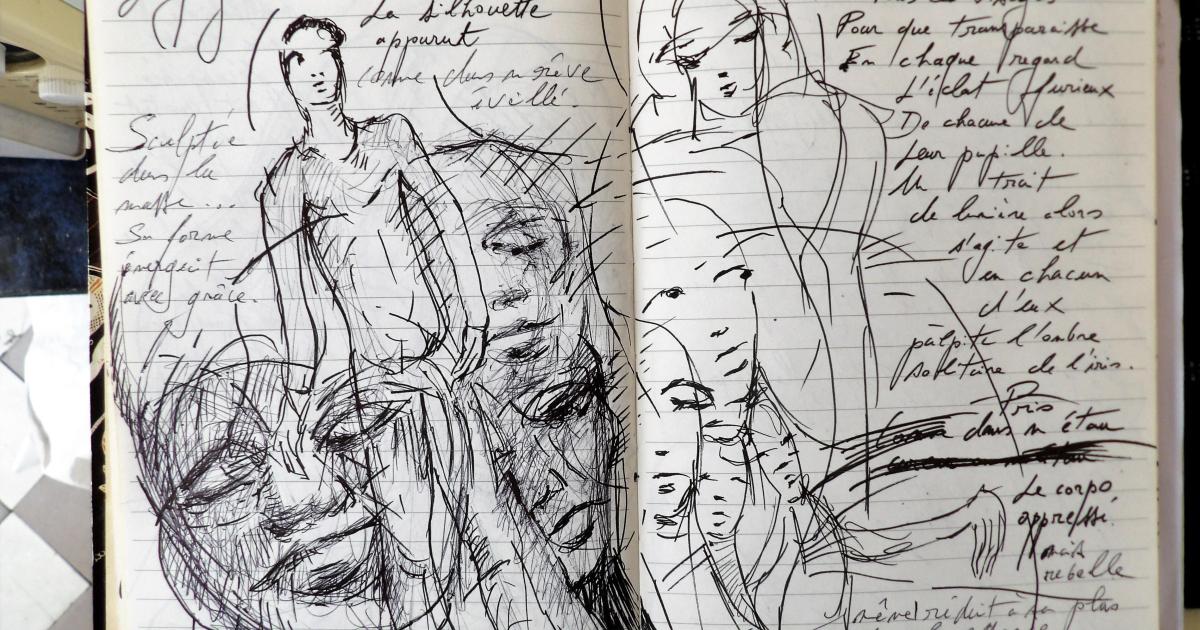 La silhouette
apparut
comme dans un rêve
éveillé.
Sculptée
dans la
masse...
Sa forme
émergeait
avec grâce.
Pour que transparaisse
En chaque regard
L'éclat furieux
De chacune de
Leur pupille.
Un trait
de lumière alors
s'agite et
en chacun
d'eux
palpite l'ombre
solitaire de l'iris.
Pris
dans un étau
Le corps,
oppressé.
mais
rebelle
même réduit à sa plus